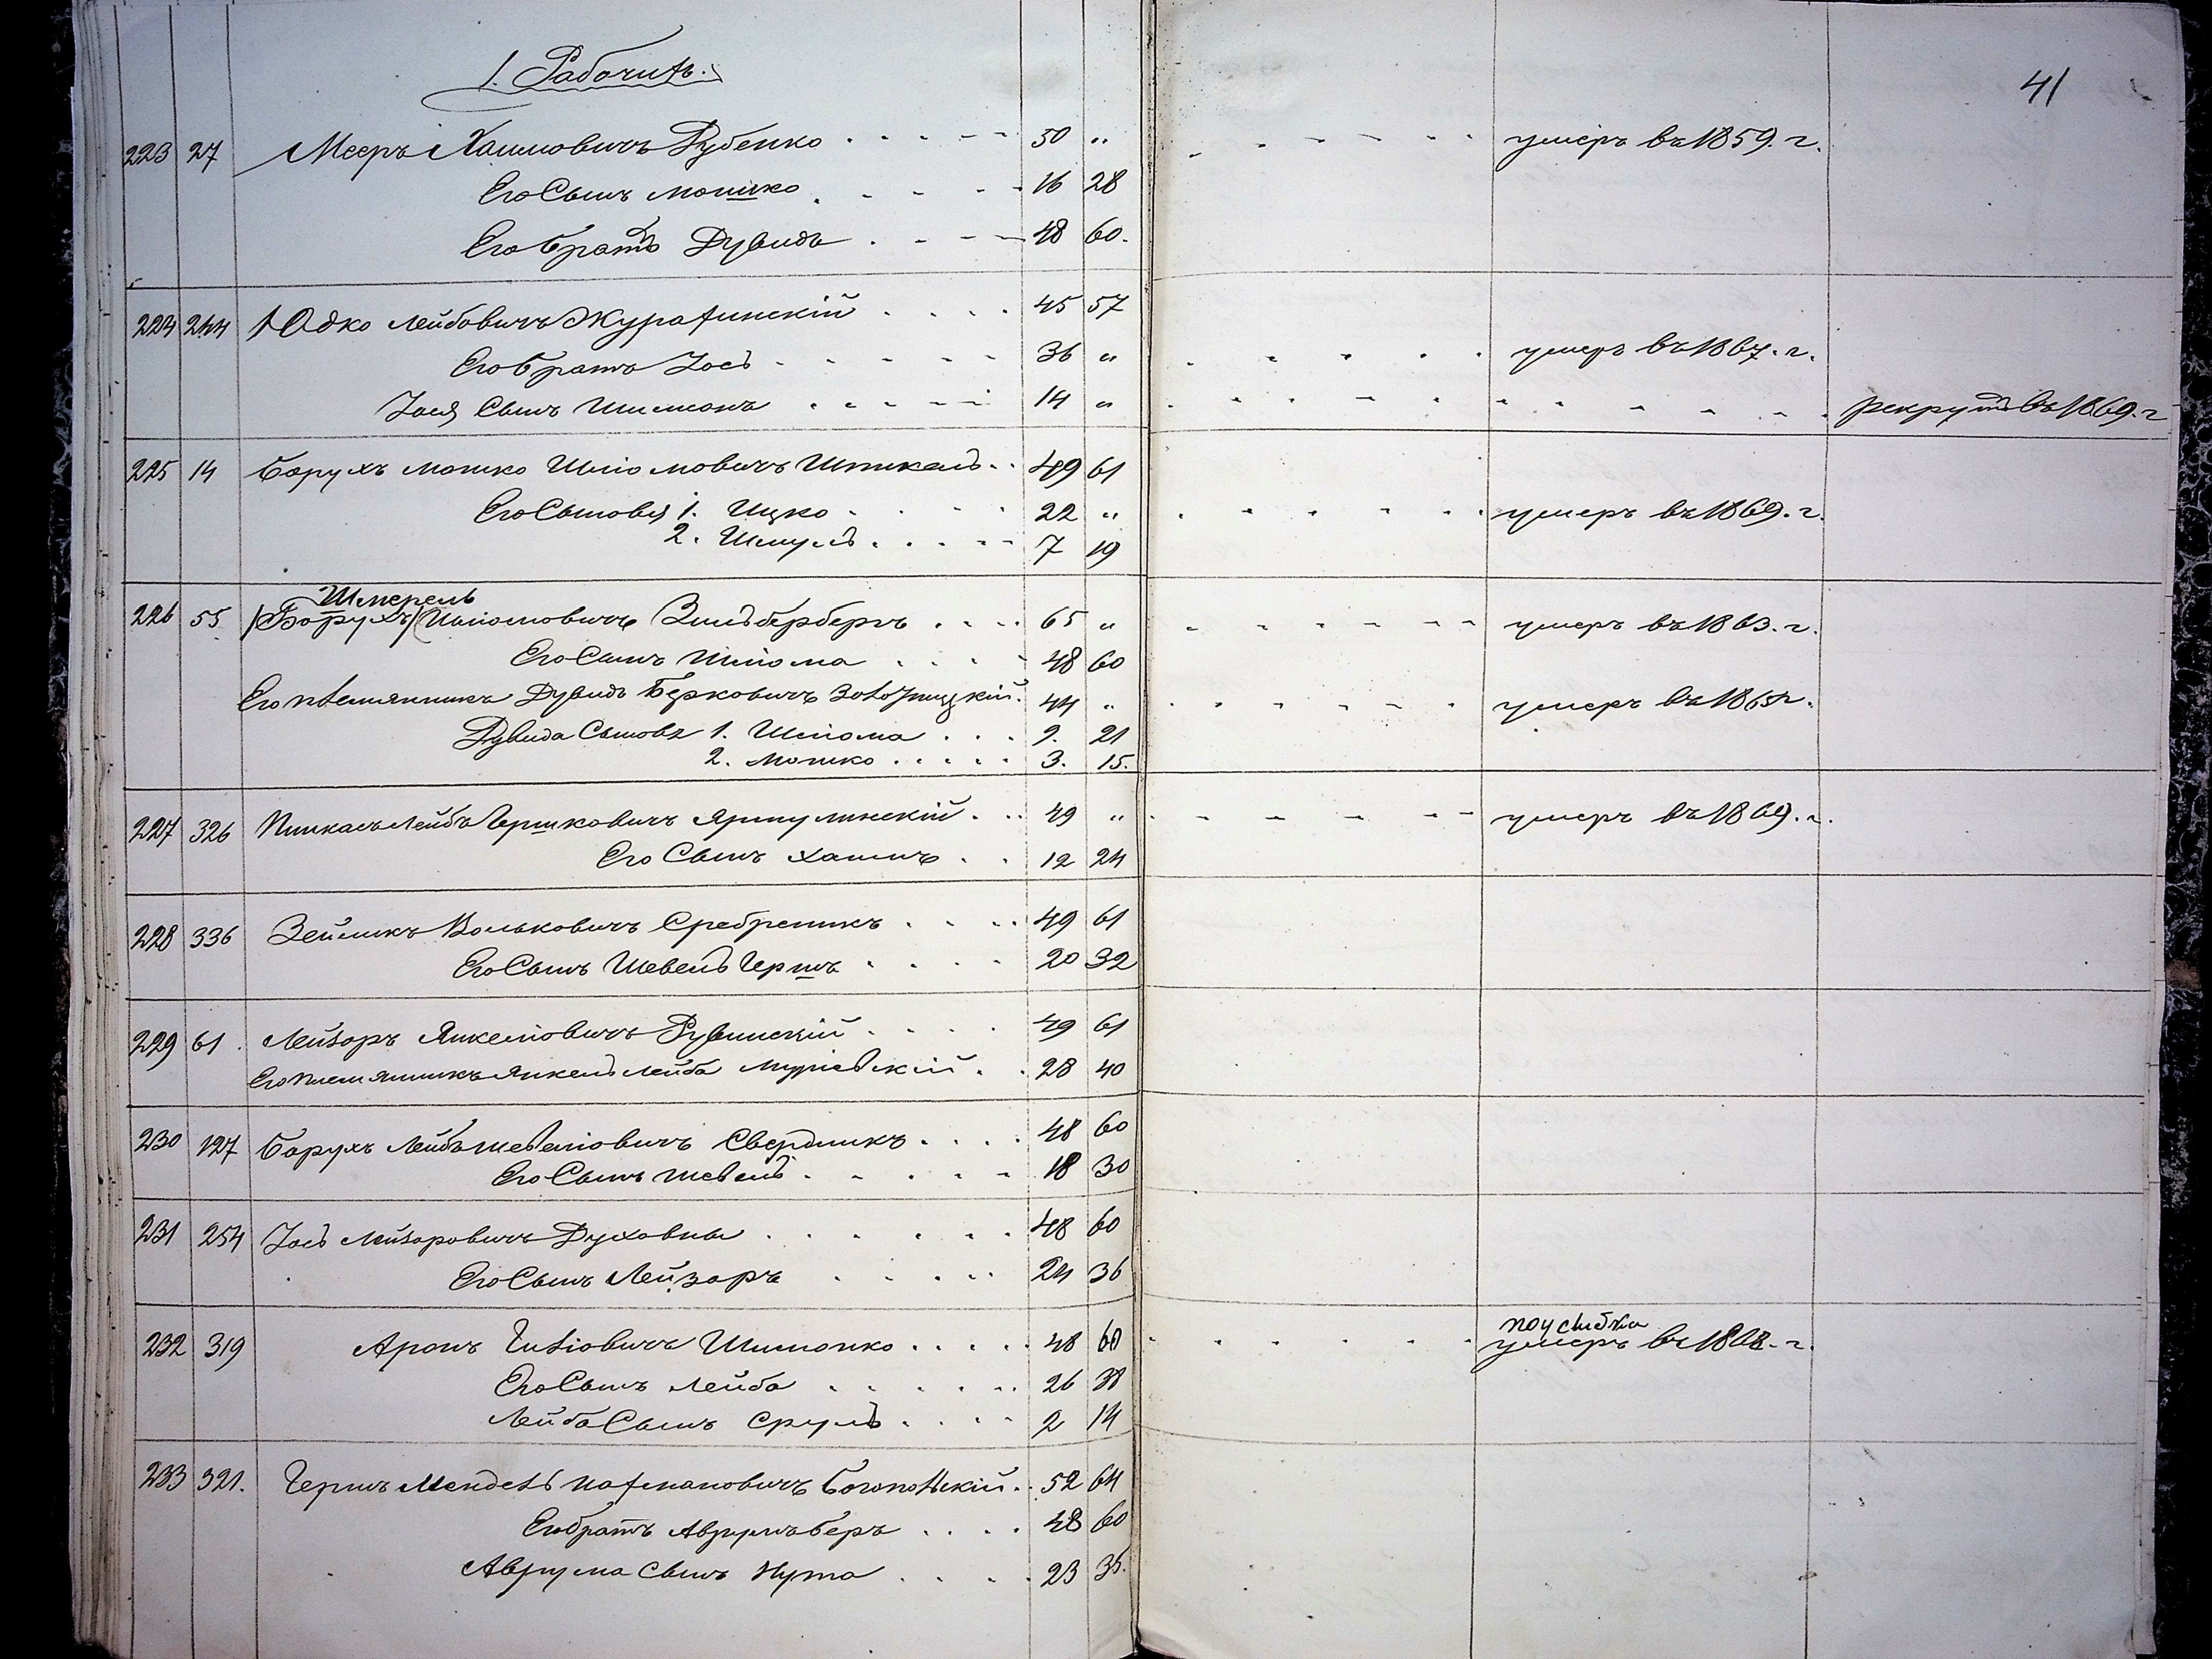 1. Рабочихъ.
41
223 27 Мееръ Хаимовичъ Рубенко 50 „ умеръ въ 1859. г.
Его Сынъ Мошко 16 28
Его братъ Дувидъ 48 60.
224 244 Юдко Лейбовичъ Журавинскій 45 57
Его братъ Іось 36 „ умеръ въ 1867. г.
Іося Сынъ Шимонъ 14 „ рекрутъ въ 1869. г
225 14 Борухъ Мошко Шліомовичъ 49 61
Его Сыновья 1. Ицко 22 „ умеръ въ 1869. г.
2. Шмуль 7 19
Шмерель
226 55 /Борухъ/ Шліомовичъ Зильберберъ 65 „ умеръ въ 1863. г.
Его Сынъ Шліома 48 60
Его племянникъ Дувидъ Берковичъ 44 „ умеръ въ 1865 г.
Дувида Сыновья 1. Шліома 9. 21
2. Мошко 3. 15.
227 326 Пинкасъ Лейбъ Гершковичъ Ярмулинскій 49 „ умеръ въ 1869. г.
Его Сынъ Хаимъ 12 24
228 336 Зейликъ Вольковичъ Сребреникъ 49 61
Его Сынъ Шевель Гершъ 20 32
229 61 Лейзоръ Янкеліовичъ Рувинскій 49 61
Его племянникъ Янкель Лейба 28 40
230 127 Борухъ Лейбъ Шевеліовичъ Свердликъ 48 60
Его Сынъ Шевель 18 30
231 254 Іось Лейзоровичъ Духовны 48 60
Его Сынъ Лейзоръ 24 36
поусиδка
232 319 Аронъ Шимонко 48 60 умеръ въ 1868. г.
Его Сынъ Лейба 26 38
Лейба Сынъ Сруль 2 14
233 321. Гершъ Мендель Натмановичъ Богопольскій 52 64
Его братъ Аврумъ Беръ 48 60
Аврума Сынъ Нута 23 35.